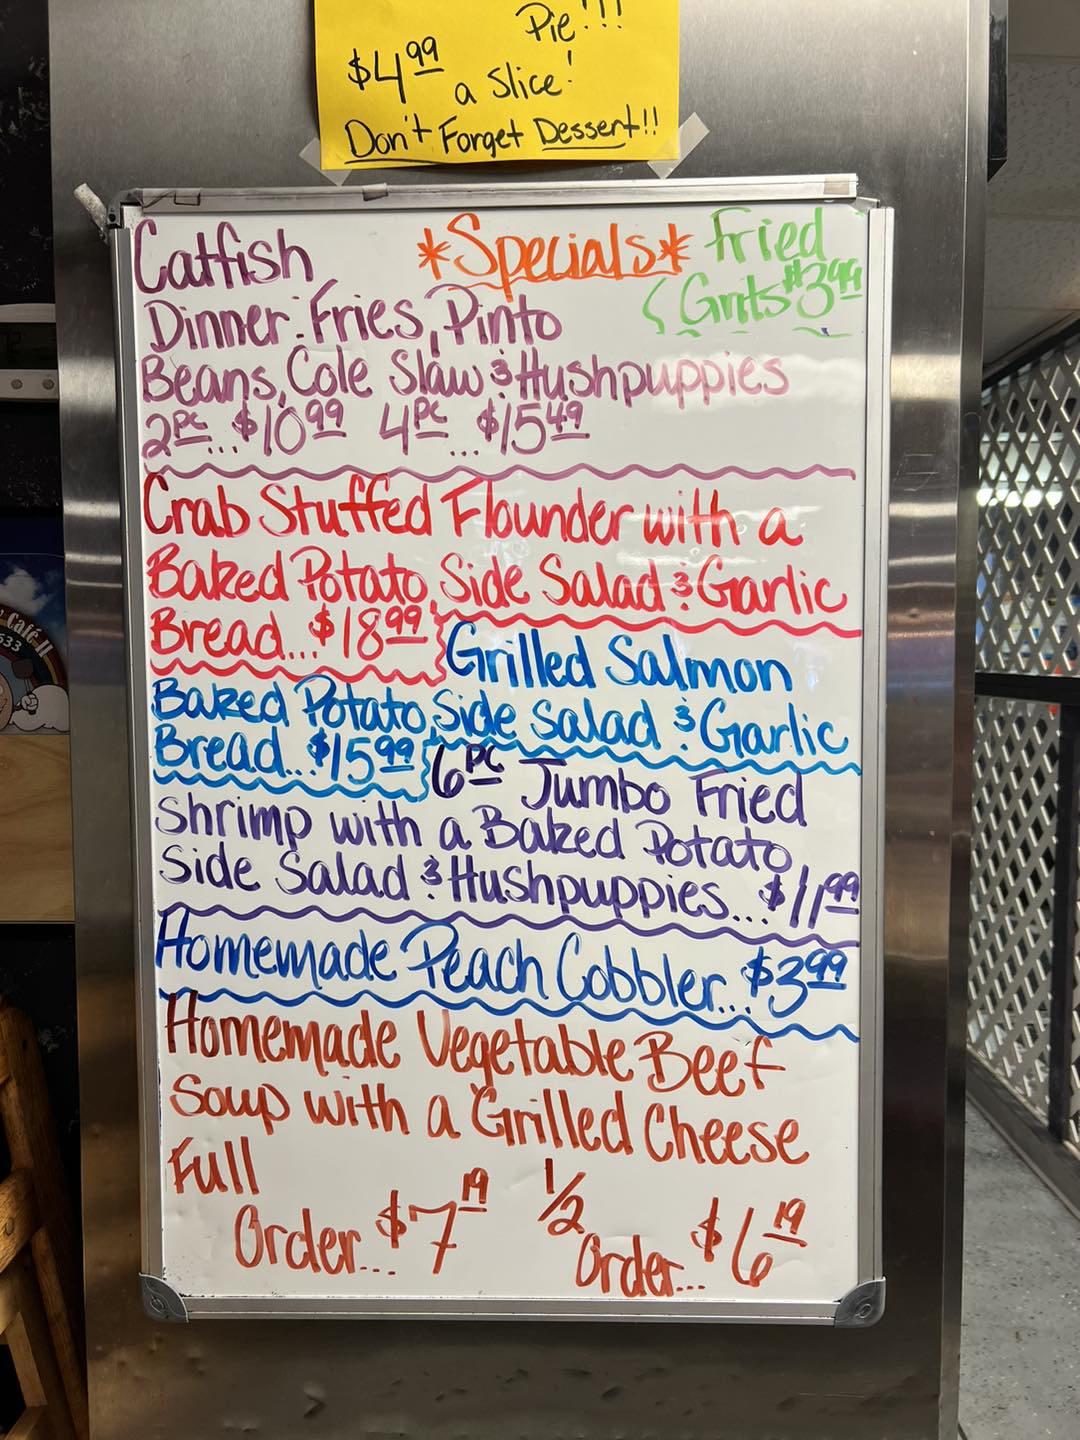 Pie!!!
$4.99
a Slice!
Don't Forget Dessert!!
*Specials*
Fried
Grits $3.99
Catfish
Dinner: Fries, Pinto
Beans, Cole Slaw & Hushpuppies
2pc...$10.99 4pc...$15.49
Crab Stuffed Flounder with a
Baked Potato, Side Salad & Garlic
Bread...$18.99
Grilled Salmon
Baked Potato, Side Salad & Garlic
Bread...$15.99
6pc Jumbo Fried
Shrimp with a Baked Potato,
Side Salad & Hushpuppies...$11.99
Homemade Peach Cobbler...$3.99
Homemade Vegetable Beef
Soup with a Grilled Cheese
Full
Order...$7.19
1/2
Order...$6.19
Café II
533